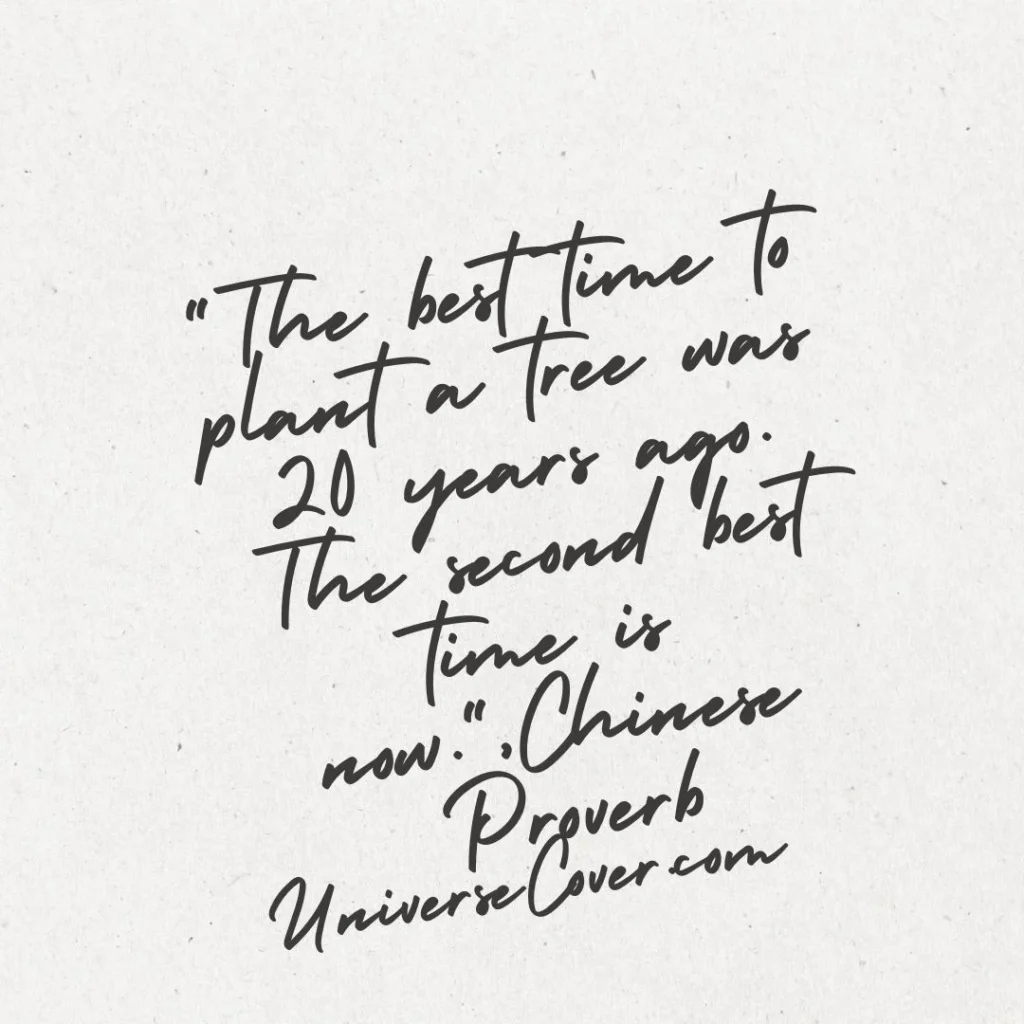 "The best time to
plant a tree was
20 years ago.
The second best
time is
now.",Chinese
Proverb
UniverseCover.com